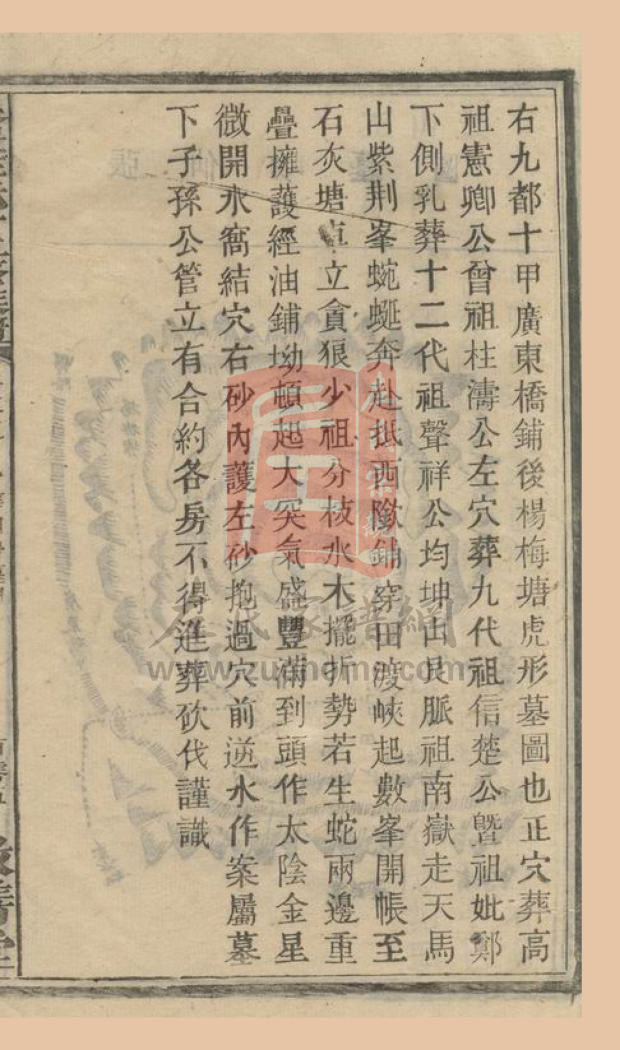 右九都十甲廣東橋鋪後楊梅塘虎形墓圖也正穴葬高
祖憲卿公曾祖柱濤公左穴葬九代祖信楚公暨祖妣鄭
下側乳葬十二代祖聲祥公均坤山艮脈祖南嶽走天馬
山紫荆峯蜿蜒奔赴抵西陰鋪穿田渡峽起數峯開帳至
石灰塘卓立貪狼少祖分枝水木擺折勢若生蛇兩邊重
疊擁護經油鋪坳頓起大突氣盛豐滿到頭作太陰金星
微開水窩結穴右砂內護左砂抱過穴前逆水作案屬墓
下子孫公管立有合約各房不得進葬砍伐謹識
www.zuhome.com